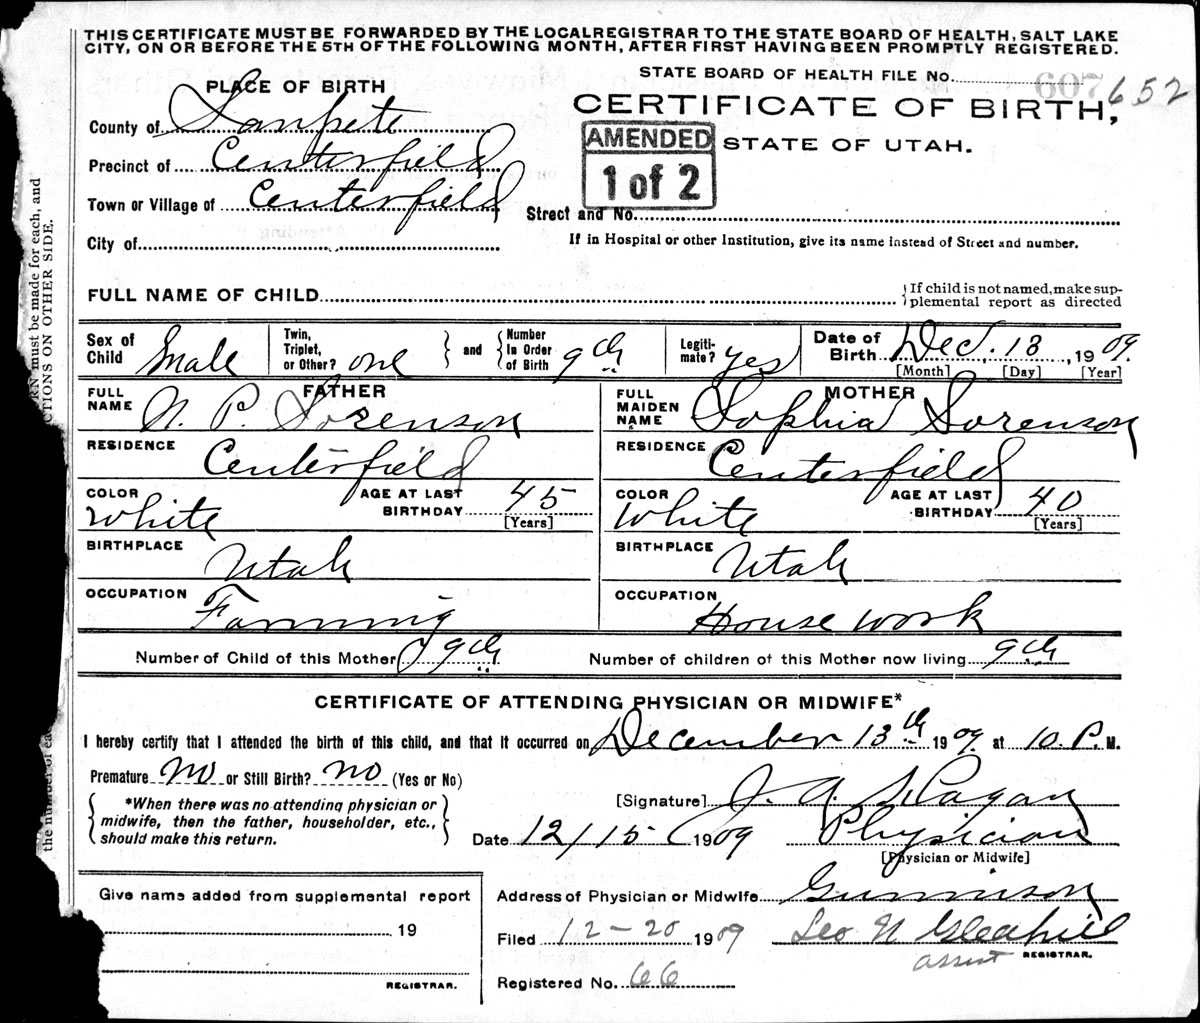 THIS CERTIFICATE MUST BE FORWARDED BY THE LOCAL REGISTRAR TO THE STATE BOARD OF HEALTH, SALT LAKE
CITY, ON OR BEFORE THE 5TH OF THE FOLLOWING MONTH, AFTER FIRST HAVING BEEN PROMPTLY REGISTERED.
STATE BOARD OF HEALTH FILE NO. 607 652
PLACE OF BIRTH
CERTIFICATE OF BIRTH,
County of Sanpete
AMENDED
STATE OF UTAH.
Precinct of Centerfield
1 of 2
Town or Village of Centerfield
Street and No.
City of
If in Hospital or other Institution, give its name instead of Street and number.
FULL NAME OF CHILD
If child is not named, make sup-
plemental report as directed
Sex of Child Male
Twin, Triplet, or Other? one
and
Number In Order of Birth 9th
Legiti-mate? yes
Date of Birth Dec. 13, 1909.
[Month] [Day] [Year]
FATHER
FULL NAME N. P. Sorenson
MOTHER
FULL MAIDEN NAME Sophia Sorenson
RESIDENCE Centerfield
RESIDENCE Centerfield
COLOR White
AGE AT LAST BIRTHDAY 45
[Years]
COLOR White
AGE AT LAST BIRTHDAY 40
[Years]
BIRTHPLACE Utah
BIRTHPLACE Utah
OCCUPATION Farming
OCCUPATION House work
Number of Child of this Mother 9th
Number of children of this Mother now living 9th
CERTIFICATE OF ATTENDING PHYSICIAN OR MIDWIFE*
I hereby certify that I attended the birth of this child, and that it occurred on December 13th 1909. at 10. P. M.
Premature no or Still Birth? no (Yes or No)
*When there was no attending physician or
midwife, then the father, householder, etc.,
should make this return.
[Signature] J. A. Hagan
Date 12/15 1909
Physician
[Physician or Midwife]
Give name added from supplemental report
19
REGISTRAR.
Address of Physician or Midwife Gunnison
Filed 12-20 1909
Leo N Gledhill
assist REGISTRAR.
Registered No. 66
RN must be made for each, and
CTIONS ON OTHER SIDE.
the number of eac